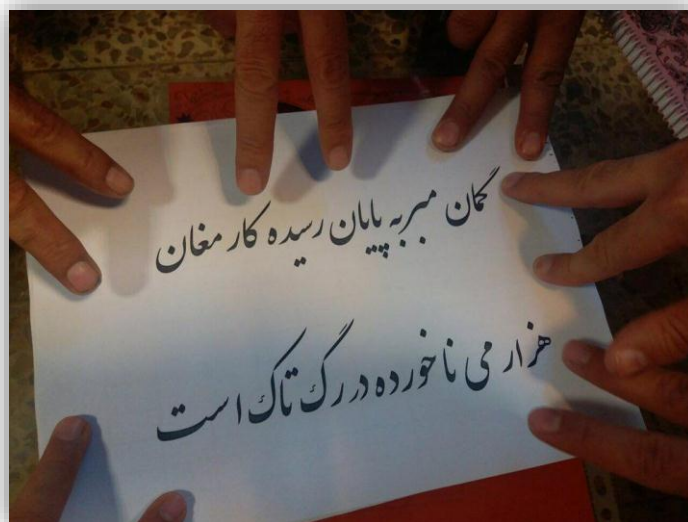 گمان مبر به پایان رسیده کار مغان
هزار می ناخورده در رگ تاک است